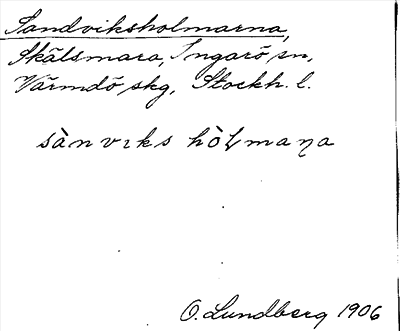 Sandviksholmarna,
Skälsmara, Ingarö sn,
Värmdö skg, Stockh. l.
sànvıks hòɫmaꞃa
O. Lundberg 1906